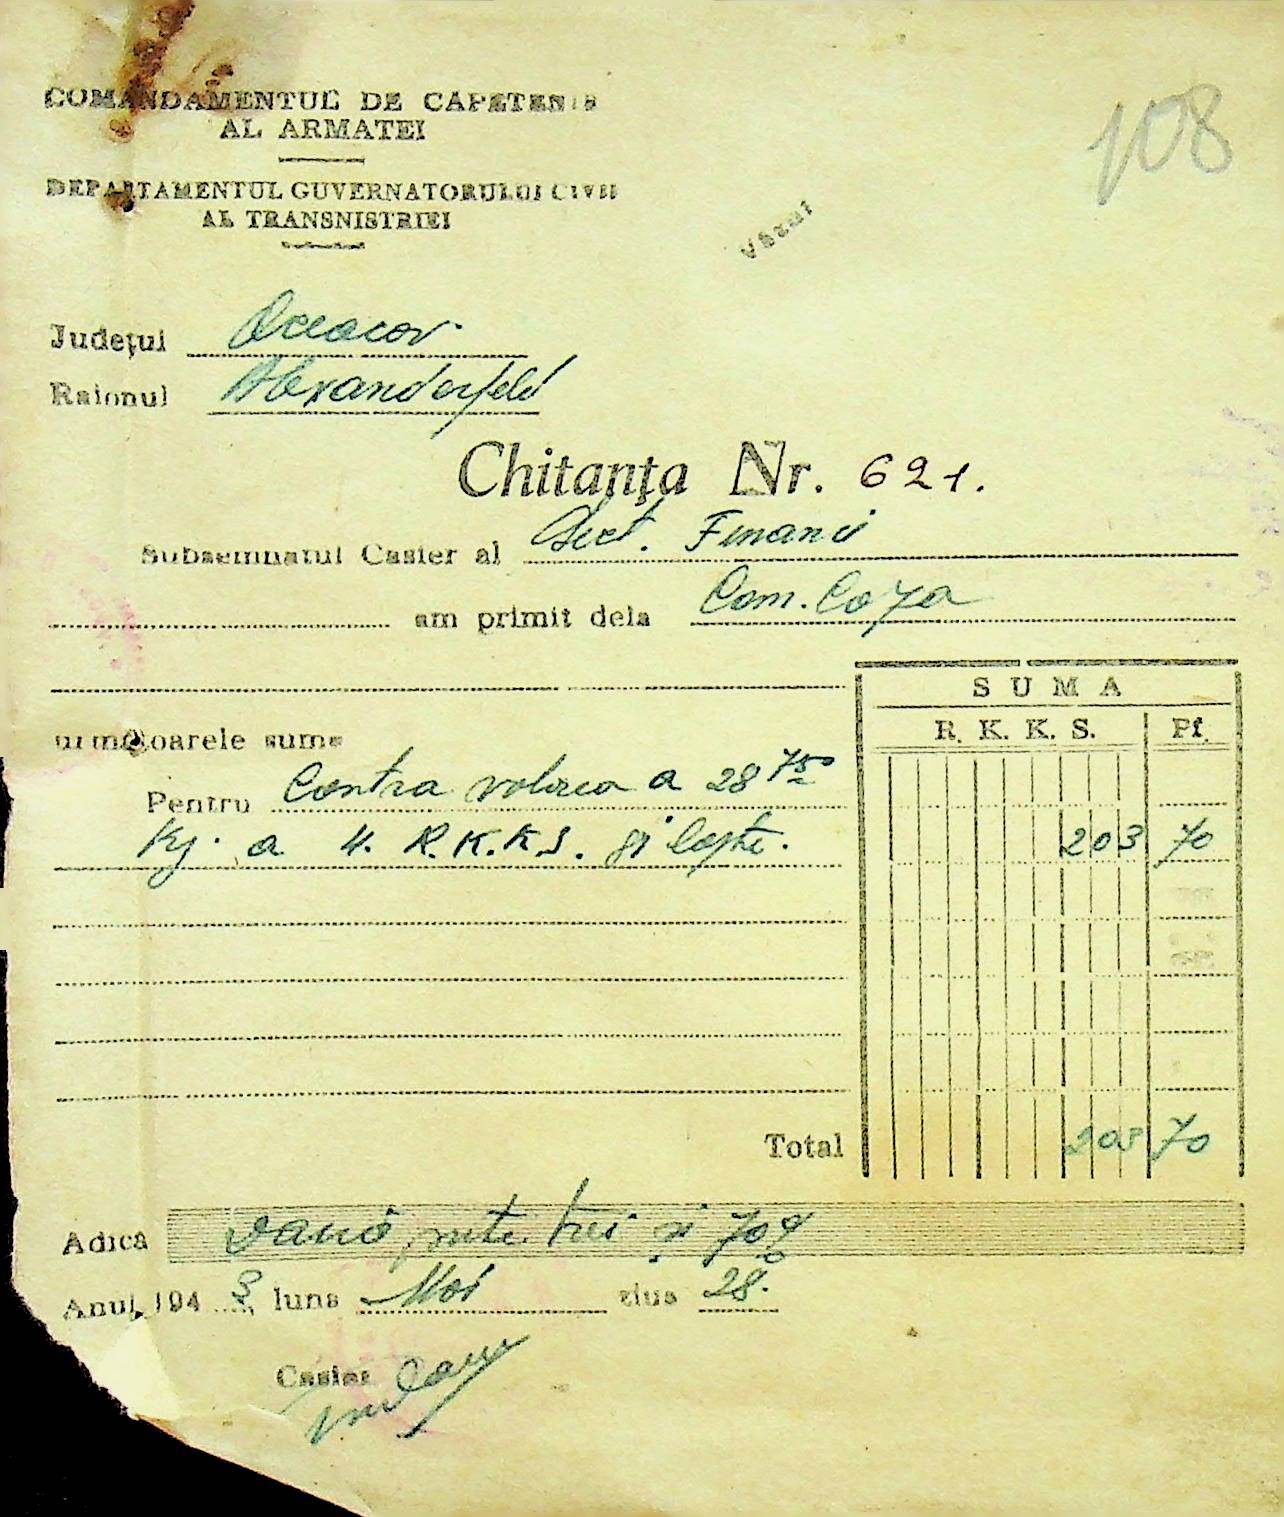 108
COMANDAMENTUL DE CAPETENIE
AL ARMATEI
DEPARTAMENTUL GUVERNATORULUI CIVIL
AL TRANSNISTRIEI
Văzut
Județul Oceacov.
Raionul Alexanderfeld
Chitanța Nr. 621.
Subsemnatul Casier al Sect. Financi
am primit dela Com. Coza
SUMA
R. K. K. S. Pf.
următoarele sume
Pentru Contra valorea a 28 750
Kg. a 4. R.K.K.S. și 203 70
Total 203 70
Adică două sute trei și 70
Anul 1943, luna Mai ziua 28.
Casier